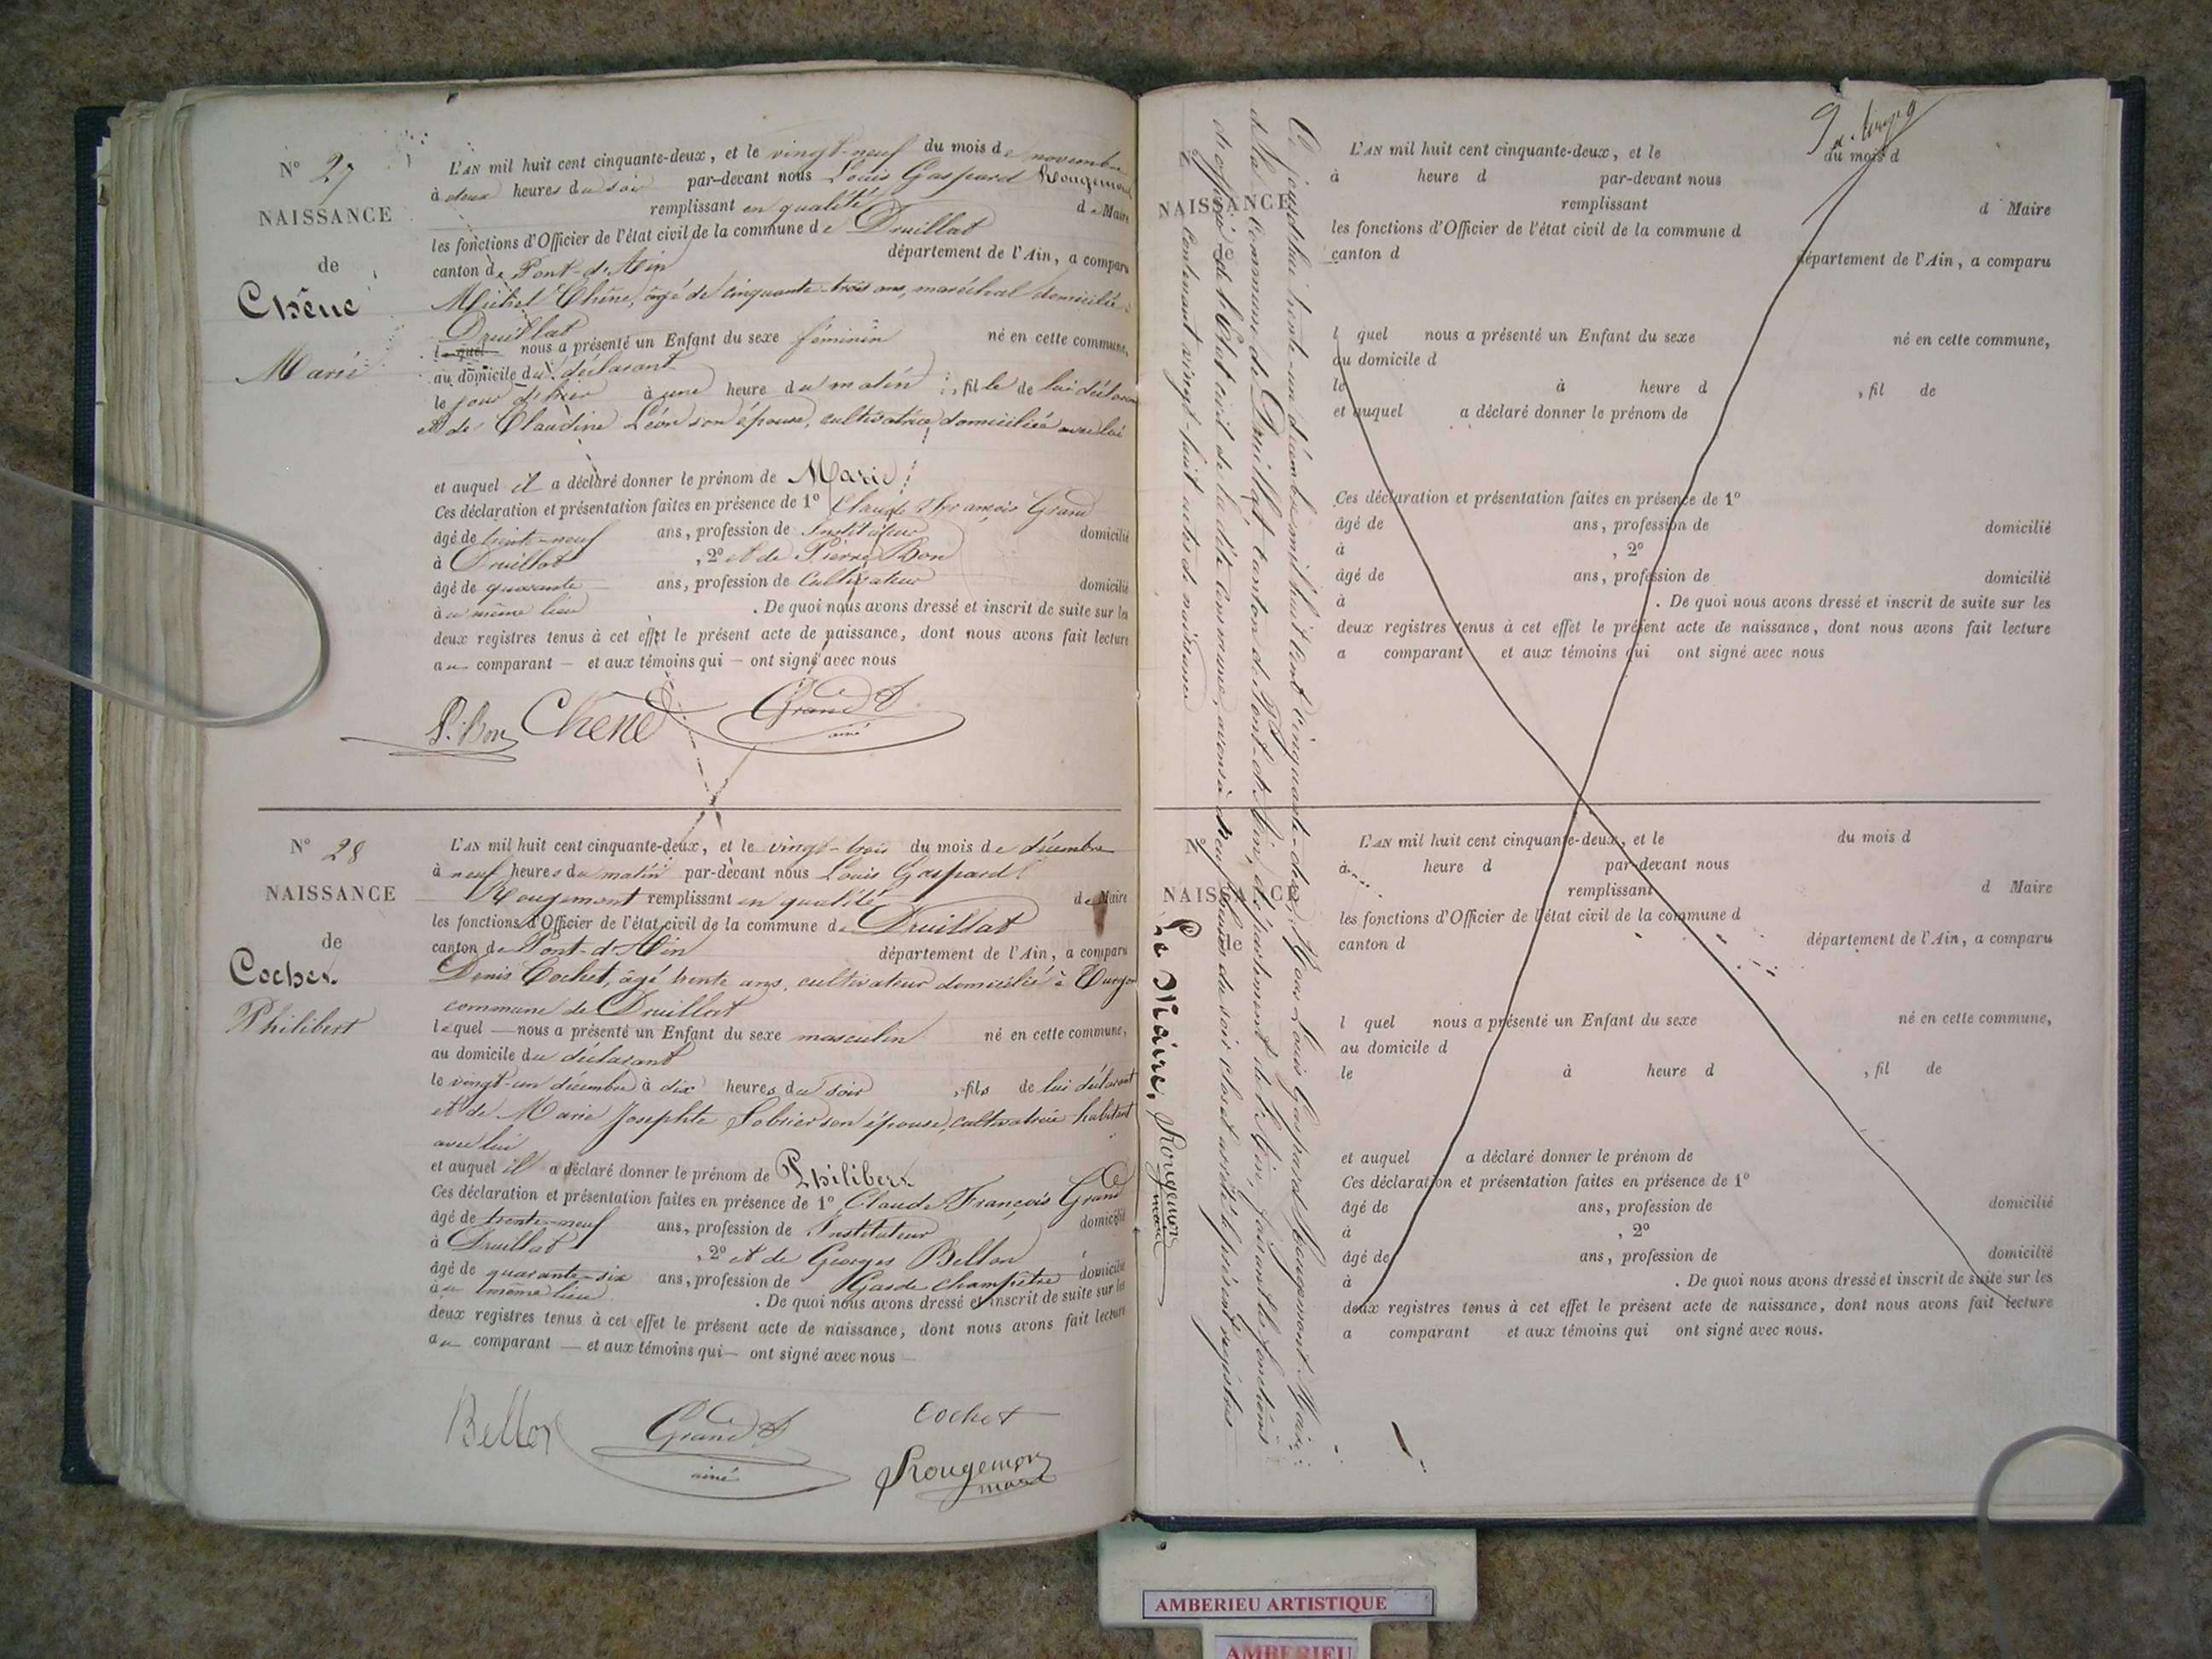 N° 27
NAISSANCE
de
Chêne
Marie
L'AN mil huit cent cinquante-deux, et le vingt-neuf du mois de novembre
à deux heures du soir par-devant nous Louis Gaspard Rougemont
remplissant en qualité de Maire
les fonctions d'Officier de l'état civil de la commune de Druillat
canton de Pont-d'Ain département de l'Ain, a comparu
Michel Chêne, âgé de cinquante-trois ans, maréchal domicilié à
Druillat
lequel nous a présenté un Enfant du sexe féminin né en cette commune,
au domicile du déclarant
le jour d'hier à une heure du matin, fille de lui déclarant
et de Claudine Léon son épouse, cultivatrice domiciliée avec lui
et auquel il a déclaré donner le prénom de Marie
Ces déclaration et présentation faites en présence de 1° Claude François Grand
âgé de trente-neuf ans, profession de Instituteur domicilié
à Druillat, 2° et de Pierre Bon
âgé de quarante ans, profession de Cultivateur domicilié
au même lieu. De quoi nous avons dressé et inscrit de suite sur les
deux registres tenus à cet effet le présent acte de naissance, dont nous avons fait lecture
au comparant — et aux témoins qui — ont signé avec nous
P. Bon Chene Grand
ainé
N° 28
NAISSANCE
de
Cochet
Philibert
L'AN mil huit cent cinquante-deux, et le vingt-trois du mois de décembre
à neuf heures du matin par-devant nous Louis Gaspard
Rougemont remplissant en qualité de Maire
les fonctions d'Officier de l'état civil de la commune de Druillat
canton de Pont-d'Ain département de l'Ain, a comparu
Denis Cochet, âgé trente ans, cultivateur domicilié à
commune de Druillat
lequel — nous a présenté un Enfant du sexe masculin né en cette commune,
au domicile du déclarant
le vingt-un décembre à dix heures du soir, fils de lui déclarant
et de Marie Josephte son épouse, cultivatrice habitant
avec lui
et auquel il a déclaré donner le prénom de Philibert
Ces déclaration et présentation faites en présence de 1° Claude François Grand
âgé de trente-neuf ans, profession de Instituteur domicilié
à Druillat, 2° et de Georges Bellon
âgé de quarante-six ans, profession de Garde Champêtre domicilié
au même lieu. De quoi nous avons dressé et inscrit de suite sur les
deux registres tenus à cet effet le présent acte de naissance, dont nous avons fait lecture
au comparant — et aux témoins qui — ont signé avec nous —
Bellon Grand Cochet
ainé Rougemont
maire
Ce jourd'hui trente-un décembre mil huit cent cinquante-deux, Nous Louis Gaspard Rougemont Maire
de la Commune de Druillat canton de Pont-d'Ain, département de l'Ain, faisant les fonctions
d'officier de l'Etat civil de la dite commune, avons à du soir clos et arrêté le présent registre
contenant vingt-huit actes de naissance
Le Maire, Rougemont
maire
NAISSANCE
de
L'AN mil huit cent cinquante-deux, et le du mois d
à heure d par-devant nous
remplissant d Maire
les fonctions d'Officier de l'état civil de la commune d
canton d département de l'Ain, a comparu
l quel nous a présenté un Enfant du sexe né en cette commune,
au domicile d
le à heure d , fil de
et auquel a déclaré donner le prénom de
Ces déclaration et présentation faites en présence de 1°
âgé de ans, profession de domicilié
à , 2°
âgé de ans, profession de domicilié
à . De quoi nous avons dressé et inscrit de suite sur les
deux registres tenus à cet effet le présent acte de naissance, dont nous avons fait lecture
a comparant et aux témoins qui ont signé avec nous
NAISSANCE
de
L'AN mil huit cent cinquante-deux, et le du mois d
à heure d par-devant nous
remplissant d Maire
les fonctions d'Officier de l'état civil de la commune d
canton d département de l'Ain, a comparu
l quel nous a présenté un Enfant du sexe né en cette commune,
au domicile d
le à heure d , fil de
et auquel a déclaré donner le prénom de
Ces déclaration et présentation faites en présence de 1°
âgé de ans, profession de domicilié
à , 2°
âgé de ans, profession de domicilié
à . De quoi nous avons dressé et inscrit de suite sur les
deux registres tenus à cet effet le présent acte de naissance, dont nous avons fait lecture
a comparant et aux témoins qui ont signé avec nous.
AMBERIEU ARTISTIQUE
AMBERIEU